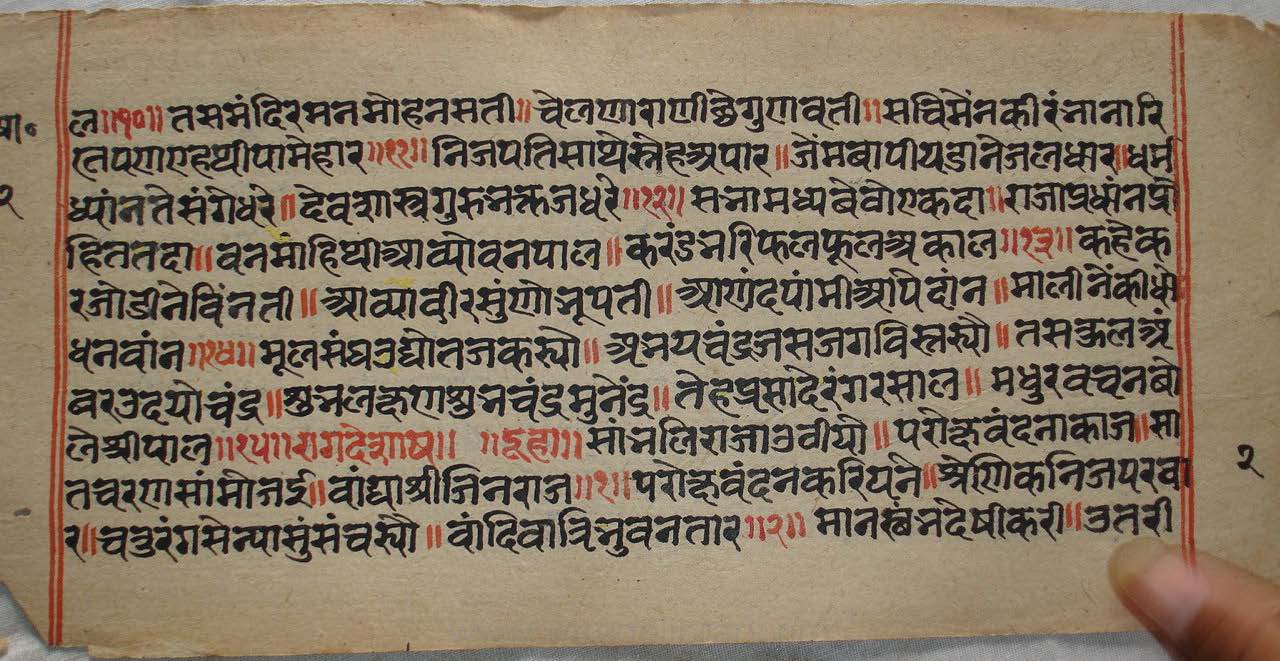 ल॥१०॥ तसमंदिरमनमोहनसती॥ चेलणाराणीछेगुणवती॥ सविमैंनकीरंभानारि
॥११॥ निजपतिसाथेस्नेहअपार॥ जेंमबापीयडानेजलधार॥ धर्म
ध्यांनतेसंगेधरे॥ देवशास्त्रगुरुभक्तजधरे॥१२॥ सभामध्यबेठोएकदा॥ राजाप्रधांनप्रो
हिततदा॥ वनमांहिथीआव्योवनपाल॥ करंडभरिफलफूलअकाल॥१३॥ कहेक
रजोडीनेविंनती॥ आव्यावीरसुंणोभूपती॥ आणंदपांमीआपेदांन॥ मालीनेंकीधो
धनवांन॥१४॥ मूलसंघउद्योतजकस्यो॥ अभयचंद्रजसजगविस्तस्यो॥ तसकुलअं
बरउदयोचंद्र॥ शुभलक्षणशुभचंद्रमुनेंद्र॥ तेहप्रसादेरंगरसाल॥ मधुरवचनबो
लेश्रीपाल॥१५॥ रागदेशाष॥ ॥दूहा॥ सांभलिराजाउवीयो॥ परोक्षवंदनाकाज॥ सा
तचरणसांमोजई॥ वांद्याश्रीजिनराज॥१॥ परोक्षवंदनकरि॥ श्रेणिकनिजपरवा
र॥ चतुरंगसेन्यासुंसंचस्यो॥ वांदिवात्रिभुवनतार॥२॥ मानस्थंभदेषीकरी॥ उतरी
२